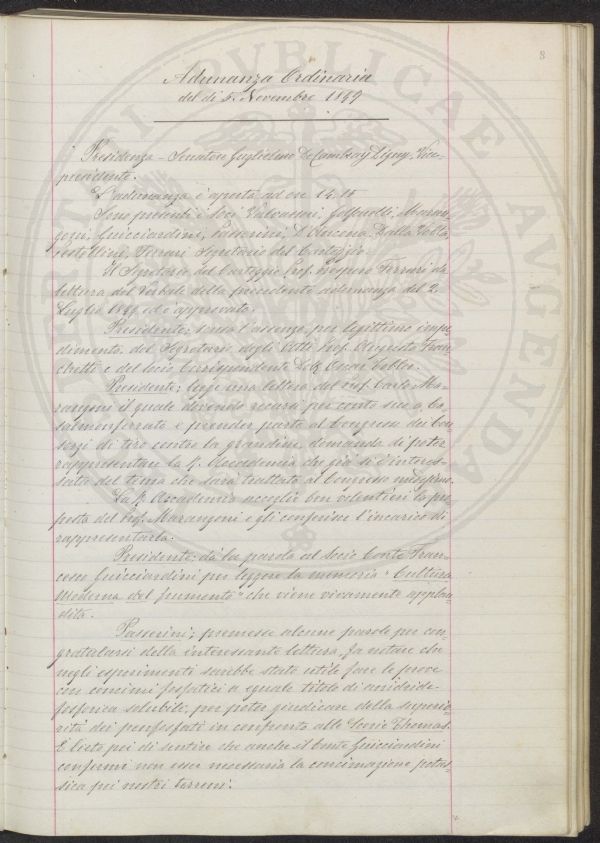 8
Adunanza Ordinaria
del dì 5. Novembre 1899
Presidenza - Senatore Guglielmo De Cambray Digny, Vice-
presidente.
L'adunanza è aperta ad ore 14.15
Sono presenti i Soci Valvassori, Golfarelli, Maran-
goni, Guicciardini, Passerini, D'Ancona, Della Volta,
Pestellini, Ferrari Segretario del Carteggio.
Il Segretario del Carteggio Prof. Prospero Ferrari dà
lettura del Verbale della precedente adunanza del 2.
Luglio 1899 ed è approvato.
Presidente: scusa l'assenza per legittimo impe-
dimento del Segretario degli Atti Prof. Augusto Fran-
chetti e del Socio Corrispondente Dott. Oscar Tobler.
Presidente: legge una lettera del Prof. Carlo Ma-
rangoni il quale dovendo recarsi per conto suo a Ca-
salmonferrato a prender parte al Congresso dei Con-
sorzi di tiro contro la grandine, domanda di poter
rappresentare la R. Accademia che già si è interes-
sata del tema che sarà trattato al Congresso medesimo.
La R. Accademia accoglie ben volentieri la pro-
posta del Prof. Marangoni e gli conferisce l'incarico di
rappresentarla.
Presidente: dà la parola al Socio Conte Fran-
cesco Guicciardini per leggere la memoria "Cultura
Moderna del frumento" che viene vivamente applau-
dita.
Passerini; premesse alcune parole per con-
gratularsi della interessante lettura, fa notare che
negli esperimenti sarebbe stato utile fare le prove
con concimi fosfatici a eguale titolo di anidride
fosforica solubile, per poter giudicare della superio-
rità dei perfosfati in confronto alle Scorie Thomas.
È lieto poi di sentire che anche il Conte Guicciardini
confermi non esser necessaria la concimazione potas-
sica pei nostri terreni.
PVBLICAE
AVGENDA